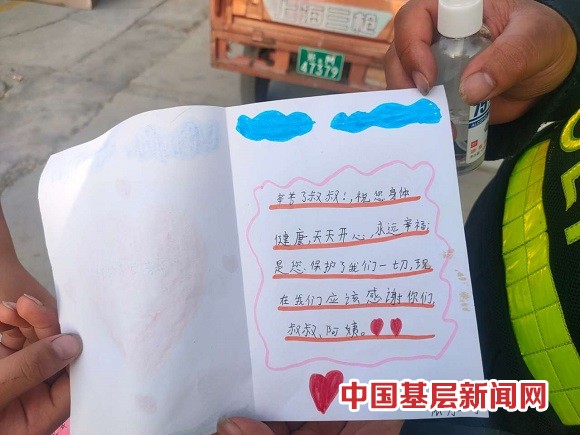 47379
75
辛苦了叔叔!,祝您身体
健康,天天开心,永远幸福,
是您保护了我们一切,现
在我们应该感谢你们,
叔叔,阿姨。
中国基层新闻网